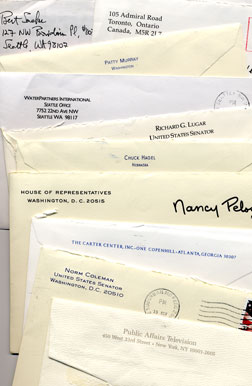 Bert Sacks
Seattle, WA 98107
105 Admiral Road
Toronto, Ontario
Canada, M5R 2L7
PATTY MURRAY
WASHINGTON
WATERPARTNERS INTERNATIONAL
SEATTLE OFFICE
7752 22ND AVE NW
SEATTLE, WA 98117
RICHARD G. LUGAR
UNITED STATES SENATOR
CHUCK HAGEL
NEBRASKA
HOUSE OF REPRESENTATIVES
WASHINGTON, D. C. 20515
Nancy Pelosi
THE CARTER CENTER, INC.-ONE COPENHILL-ATLANTA, GEORGIA 30307
NORM COLEMAN
UNITED STATES SENATOR
WASHINGTON, DC 20510
PM
Public Affairs Television
450 West 33rd Street • New York, NY 10001-2605